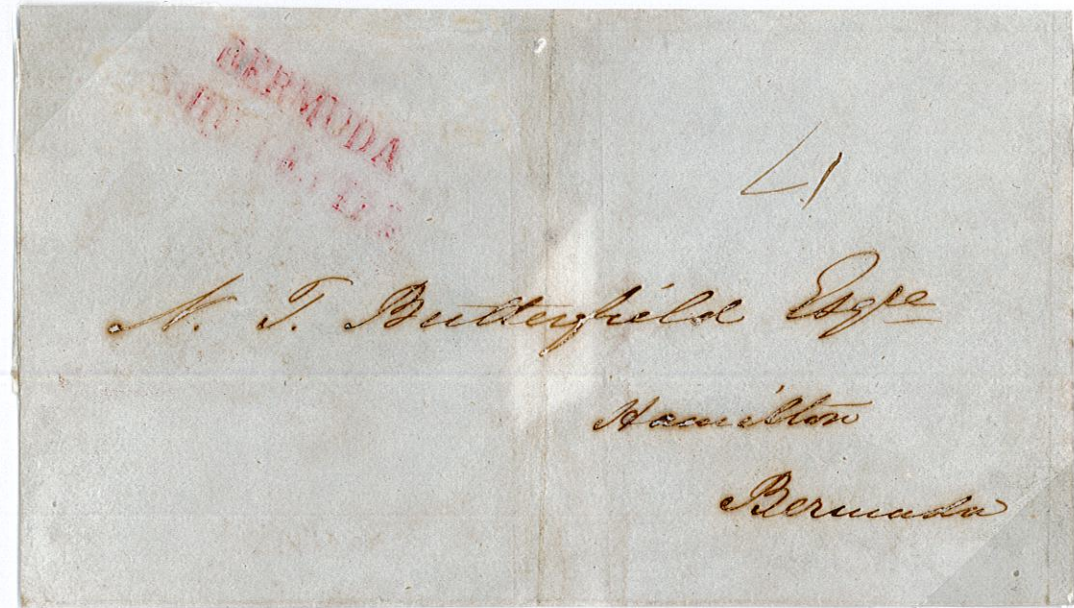 BERMUDA
SHIP LETTER
4
N. T. Butterfield Esqre
Hamilton
Bermuda